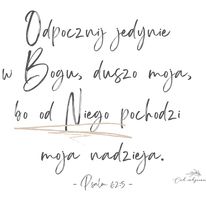 Odpocznij jedynie
w Bogu, duszo moja,
bo od Niego pochodzi
moja nadzieja.
- Psalm 62:5 -